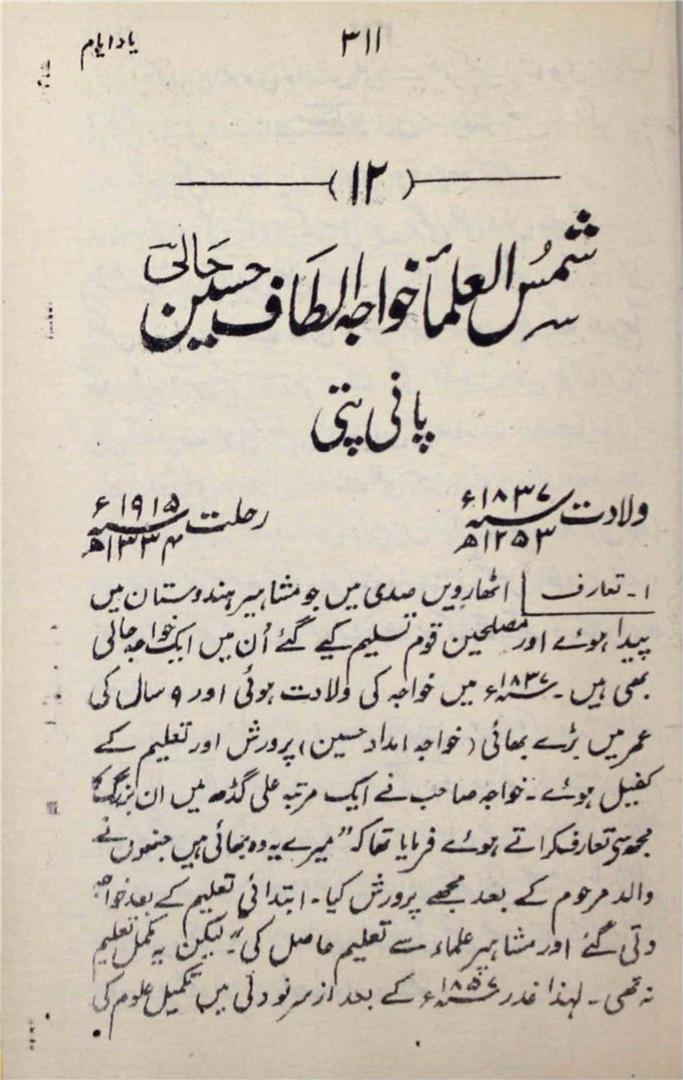 یاد ایام
۳۱۱
(۱۲)
شمس العلمأ خواجہ الطاف حسین حالی
پانی پتی
ولادت ۱۸۳۷ء ۱۲۵۳ھ رحلت ۱۹۱۵ء ۱۳۳۴ھ
۱۔ تعارف اٹھارویں صدی میں جو مشاہیر ہندوستان میں
پیدا ہوئے اور مصلحین قوم تسلیم کیے گئے اُن میں ایک خواجہ حالی
بھی ہیں۔ ۱۸۳۷ء میں خواجہ کی ولادت ہوئی اور ۹ سال کی
عمر میں بڑے بھائی (خواجہ امداد حسین) پرورش اور تعلیم کے
کفیل ہوئے۔ خواجہ صاحب نے ایک مرتبہ علی گڈھ میں ان بزرگ کا
مجھ سے تعارف کراتے ہوئے فرمایا تھا کہ "میرے یہ وہ بھائی ہیں جنھوں نے
والد مرحوم کے بعد مجھے پرورش کیا۔ ابتدائی تعلیم کے بعد خواجہ
دتی گئے اور مشاہیر علماء سے تعلیم حاصل کی۔" لیکن یہ مکمل تعلیم
نہ تھی۔ لہذا غدر ۱۸۵۷ء کے بعد از سر نو دلی میں تکمیل علوم کی